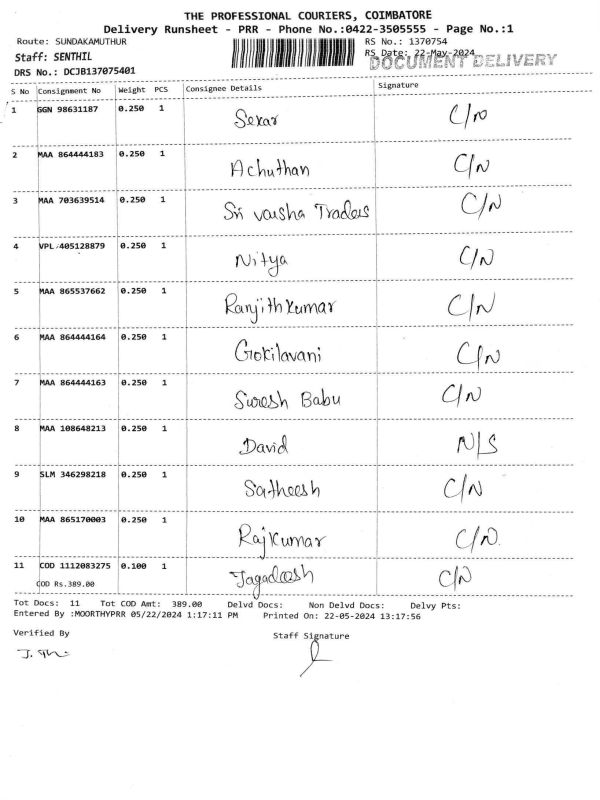 THE PROFESSIONAL COURIERS, COIMBATORE
Delivery Runsheet - PRR - Phone No.:0422-3505555 - Page No.:1
Route: SUNDAKAMUTHUR RS No.: 1370754
Staff: SENTHIL RS Date: 22-May-2024
DOCUMENT DELIVERY
DRS No.: DCJB137075401
S No Consignment No Weight PCS Consignee Details Signature
1 GGN 98631187 0.250 1 Sekar C/N
2 MAA 864444183 0.250 1 Achuthan C/N
3 MAA 703639514 0.250 1 Sri varsha Traders C/N
4 VPL 405128879 0.250 1 Nitya C/N
5 MAA 865537662 0.250 1 Ranjith Kumar C/N
6 MAA 864444164 0.250 1 Gokilavani C/N
7 MAA 864444163 0.250 1 Suresh Babu C/N
8 MAA 108648213 0.250 1 David N/S
9 SLM 346298218 0.250 1 Satheesh C/N
10 MAA 865170003 0.250 1 Rajkumar C/N
11 COD 1112083275 0.100 1 Jagadeesh C/N
COD Rs.389.00
Tot Docs: 11 Tot COD Amt: 389.00 Delvd Docs: Non Delvd Docs: Delvy Pts:
Entered By :MOORTHYPRR 05/22/2024 1:17:11 PM Printed On: 22-05-2024 13:17:56
Verified By Staff Signature